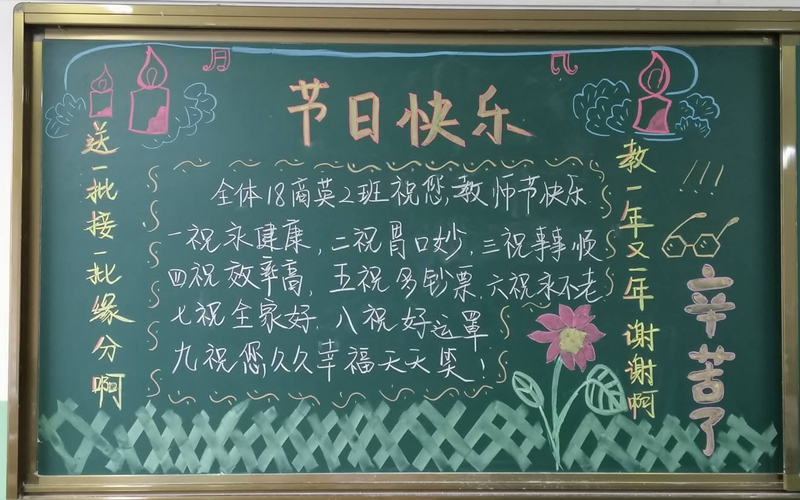 节日快乐
送一批接一批缘分啊
全体18商英2班祝您教师节快乐
一祝永健康,二祝胃口妙,三祝事事顺
四祝效率高,五祝多钞票,六祝永不老
七祝全家好,八祝好运罩
九祝您久久幸福天天笑!
教一年又一年谢谢啊
辛苦了